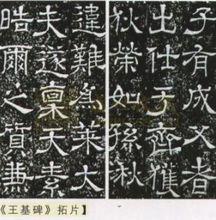 子有成父者
出仕于齊獲
狄榮如孫湫
違難為萊大
夫遂稟天素
皓爾之質兼
《王基碑》拓片】